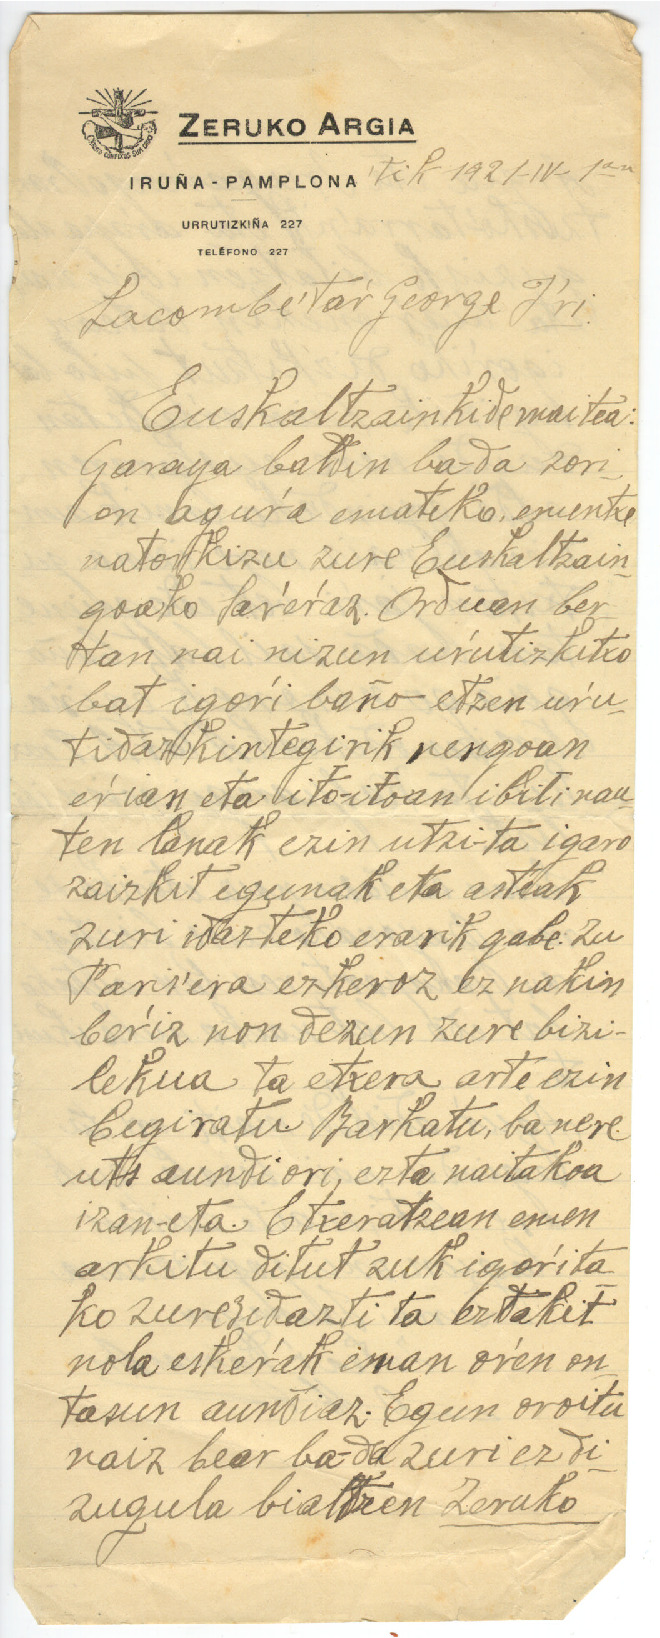 ZERUKO ARGIA
IRUÑA - PAMPLONA 'tik 1921-IV-1an
URRUTIZKIÑA 227
TELÉFONO 227
Lacombe'tar̃ George J'ri.
Euskaltzainkide maitea:
Garaya baldin ba-da zori-
on agur̃a emateko, ementxe
natorkizu zure Euskaltzain-
goako sar̃er̃az. Orduan ber-
tan nai nizun ur̃utizkitxo
bat igor̃i baño etzen ur̃u-
tidazkintegirik nengoan
er̃ian eta ito-itoan ibili nau-
ten lanak ezin utzi-ta igaro
zaizkit egunak eta asteak
zuri idazteko erarik gabe. Zu
Paris'era ezkeroz ez nakin
ber̃iz non dezun zure bizi-
lekua ta etxera arte ezin
begiratu. Barkatu, ba nere
uts aundi ori, ezta naitakoa
izan-eta. Etxeratzean emen
arkitu ditut zuk igor̃ita
ko zure idazti ta eztakit
nola esker̃ak eman or̃en on-
tasun aundiaz. Egun oroitu
naiz bear ba-da zuri ez di-
zugula bialtzen Zeruko